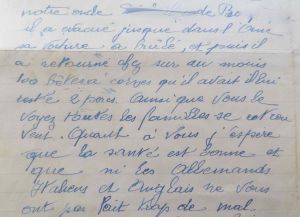 notre oncle de
il a évacué jusque dans l'
sa voiture a brûlé et puis il
a retourné chez sur au moins
100 corves qu'il avait il lui
resté 2 pores. Ainsi que vous le
voyez toutes les familles se
vent. Quant à vous j'espère
que la santé est bonne et
que ni les Allemands
Italiens et Anglais ne vous
ont pas fait trop de mal.